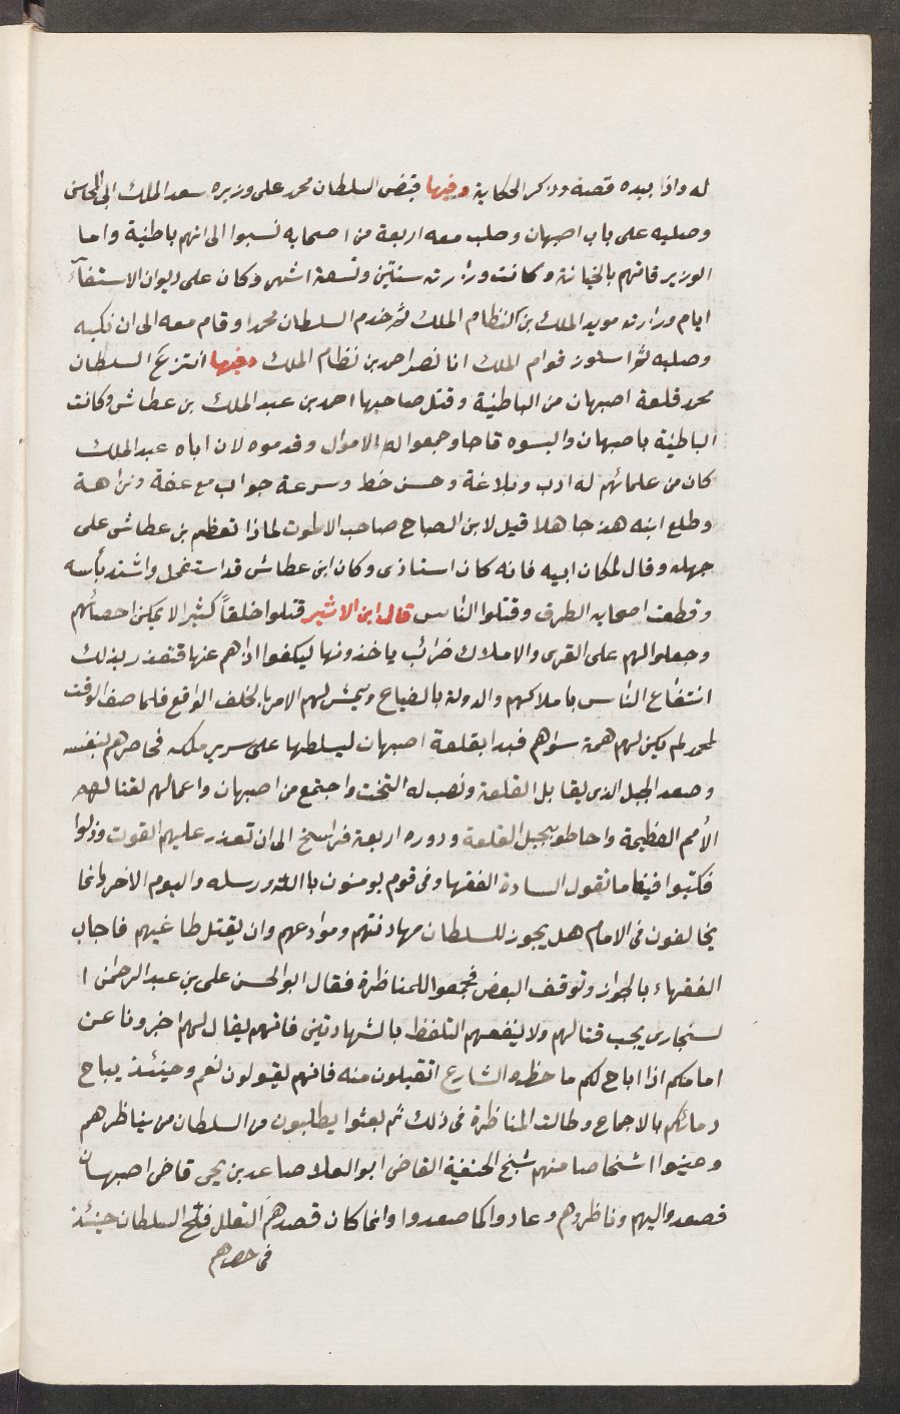 له واذا بيده قصة وذكر الحكاية وفيها قبض السلطان محمد على وزيره سعد الملك ابي المحاسن
وصلبه على باب اصبهان وصلب معه اربعة من اصحابه نسبوا الى انهم باطنية واما
الوزير فاتهم بالخيانة وكانت وزارته سنتين وتسعة اشهر وكان على ديوان الاستيفآء
ايام وزارة مويد الملك بن النظام الملك ثم خدم السلطان محمدا وقام معه الى ان نكبه
وصلبه ثم استوزر قوام الملك ابا نصر احمد بن نظام الملك وفيها انتزع السلطان
محمد قلعة اصبهان من الباطنية وقتل صاحبها احمد بن عبد الملك بن عطاش وكانت
الباطنية باصبهان والبسوه تاجا وجمعوا له الاموال وقدموه لان اباه عبد الملك
كان من علمائهم له ادب وبلاغة وحسن خط وسرعة جواب مع عفة ونزاهة
وطلع ابنه هذا جاهلا قيل لابن الصباح صاحب الالموت لماذا تعظم بن عطاش على
جهله وقال لمكان ابيه فانه كان استاذى وكان ابن عطاش قد استفحل واشتد بأسه
وقطعت اصحابه الطرق وقتلوا الناس قال ابن الاثير قتلوا خلقاً كثيرا لا يمكن احصائهم
وجعلوا لهم على القرى والاملاك ضرائب ياخذونها ليكفوا اذاهم عنها فتعذر بذلك
انتفاع الناس باملاكهم والدولة بالضياع وتمشى لهم الامر بالخلف الواقع فلما صفا الوقت
لمحمد لم يكن لهم همة سواهم فبدا بقلعة اصبهان ليسلطها على سرير ملكه فحاصرهم بنفسه
وصعد الجبل الذى يقابل القلعة ونصب له التخت واجتمع من اصبهان واعمالهم لقتالهم
الأمم العظيمة واحاطو بجبل القلعة ودوره اربعة فراسخ الى ان تعذر عليهم القوت وذلوا
فكتبوا فيها ما تقول السادة الفقها وفى قوم يومنون باالله ورسله واليوم الاخر وانما
يخالفون فى الامام هل يجوز للسلطان مهادنتهم وموادعهم وان يقتل طاغيهم فاجاب
الفقهاء بالجواز وتوقف البعض فجمعوا للمناظرة فقال ابو الحسن على بن عبد الرحمن ا
لسنجارى يجب قتالهم ولا ينفعهم التلفظ بالشهادتين فانهم يقال لهم اخبرونا عن
امامكم اذا اباح لكم ما حظره الشارع اتقبلون منه فانهم يقولون نعم وحينئذ يباح
دمائكم بالاجماع وطالت المناظرة فى ذلك ثم بعثوا يطلبون من السلطان من يناظرهم
وعينوا اشخاصا منهم شيخ الحنفية القاضى ابو العلا صاعد بن يحى قاضى اصبهان
فصعدوا اليهم وناظروهم وعادوا كما صعدوا وانما كان قصدهم التعلل فلج السلطان حينئذ
فى حصرهم